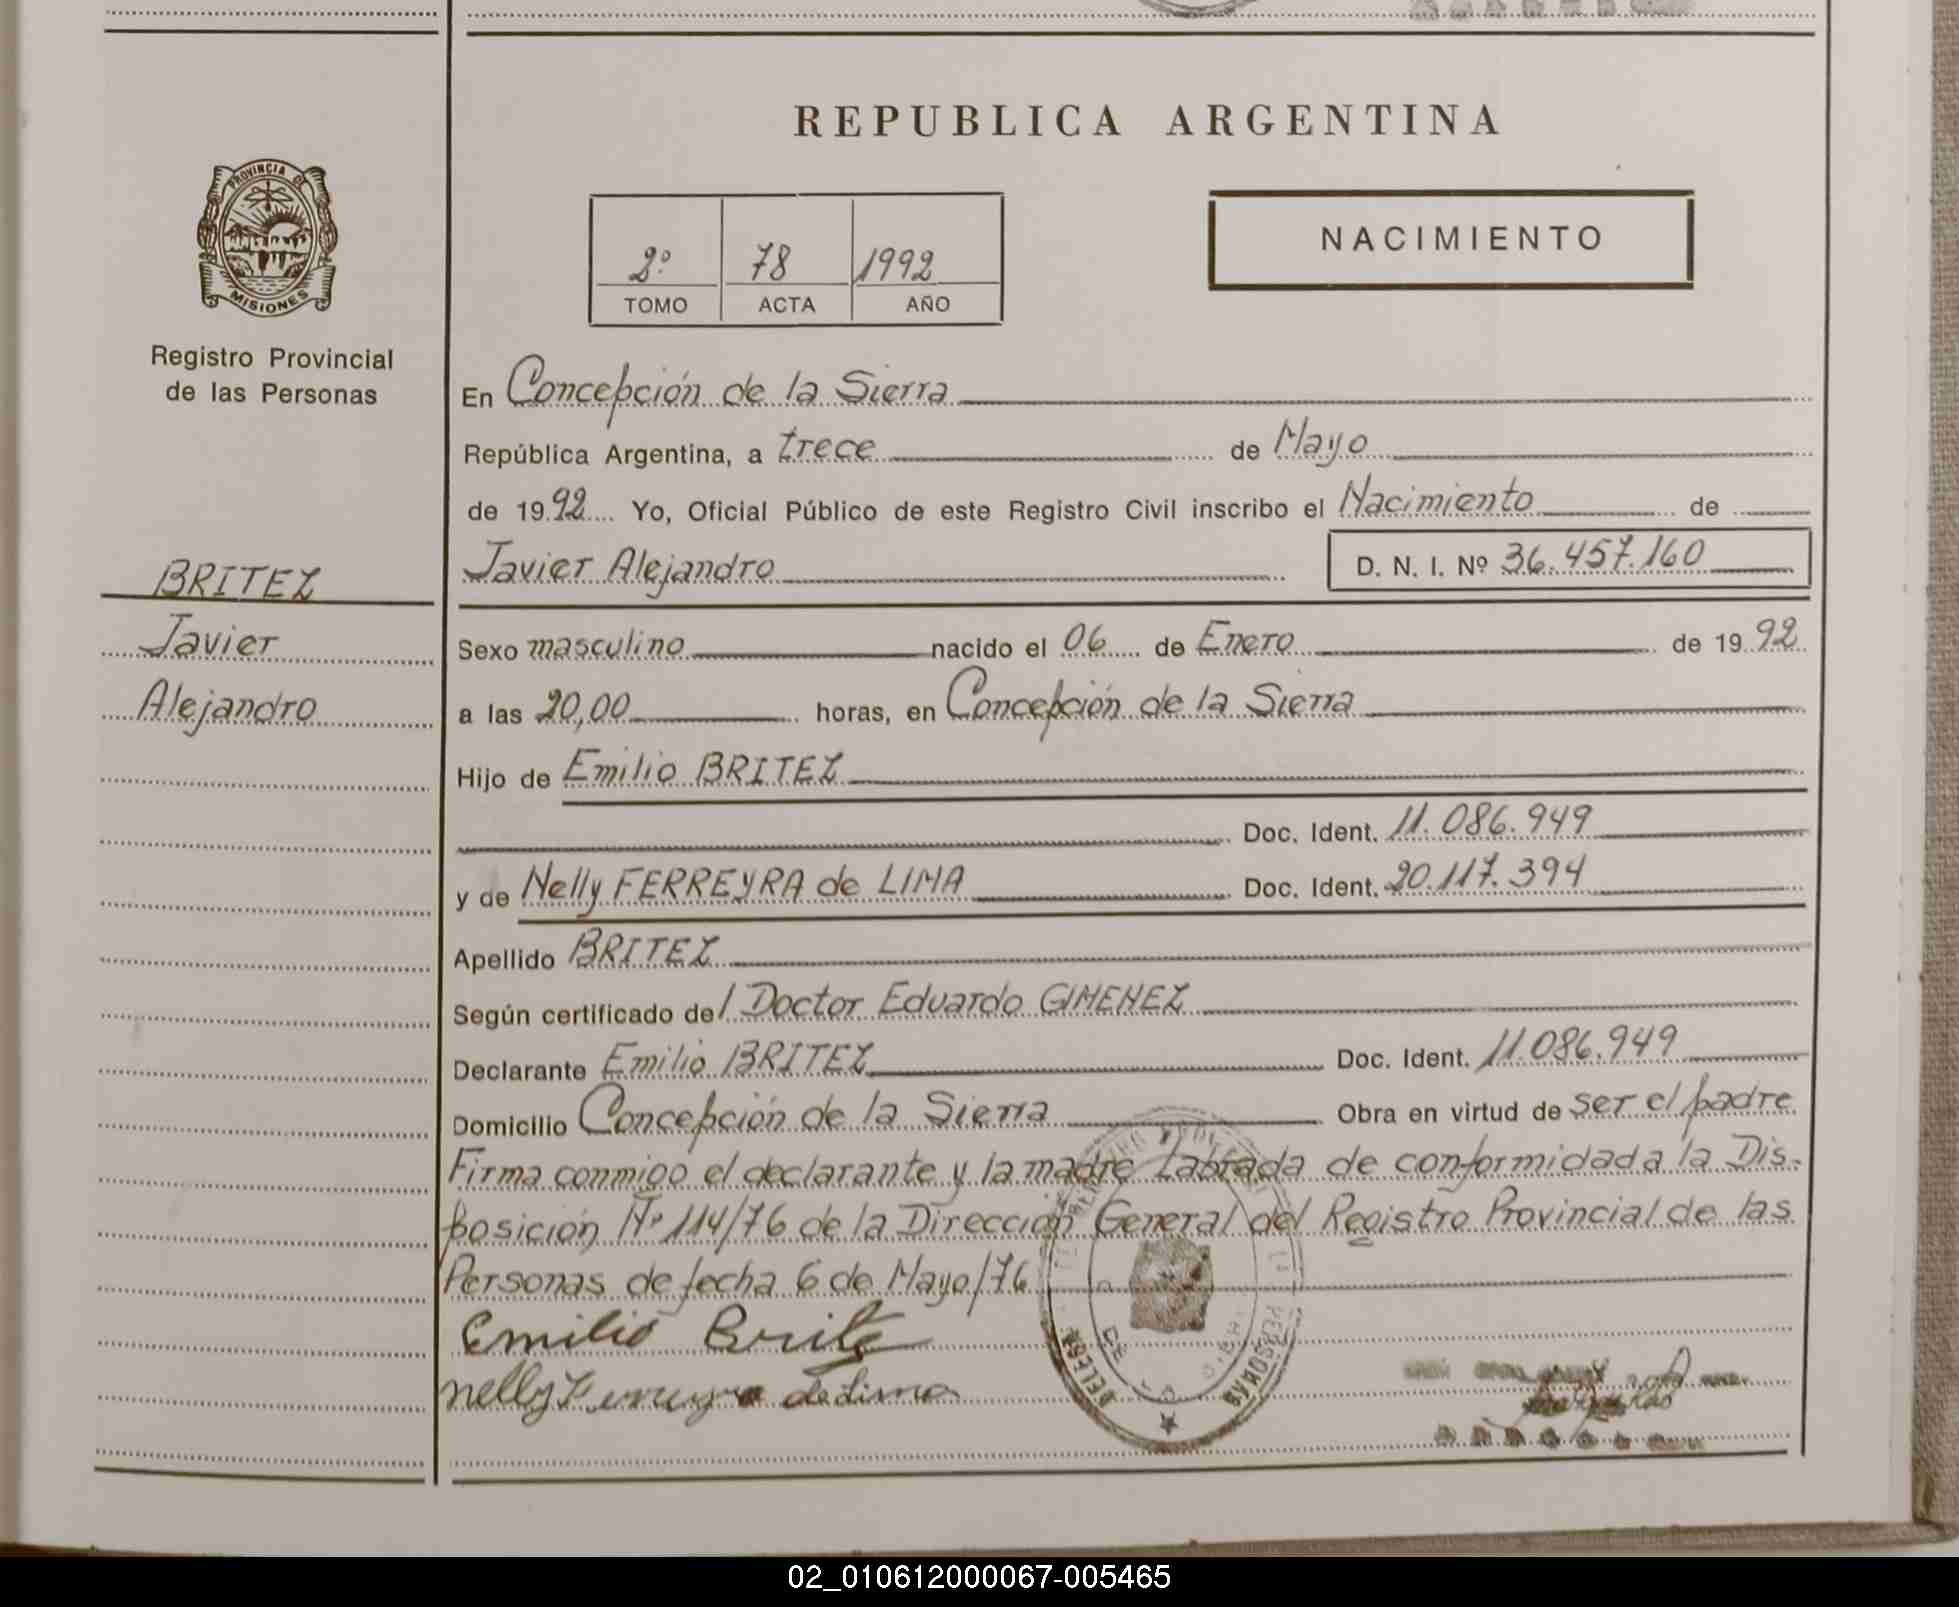 REPUBLICA ARGENTINA
PROVINCIA DE
MISIONES
Registro Provincial
de las Personas
2º 78 1992
TOMO ACTA AÑO
NACIMIENTO
BRITEZ
Javier
Alejandro
En Concepción de la Sierra
República Argentina, a trece de Mayo
de 1992 Yo, Oficial Público de este Registro Civil inscribo el Nacimiento de
Javier Alejandro D. N. I. Nº 36.457.160
Sexo masculino nacido el 06 de Enero de 1992
a las 20,00 horas, en Concepción de la Sierra
Hijo de Emilio BRITEZ
Doc. Ident. 11.086.949
y de Nelly FERREYRA de LIMA Doc. Ident. 20.117.394
Apellido BRITEZ
Según certificado del Doctor Eduardo GIMENEZ
Declarante Emilio BRITEZ Doc. Ident. 11.086.949
Domicilio Concepción de la Sierra Obra en virtud de ser el padre
Firma conmigo el declarante y la madre Labrada de conformidad a la Dis-
posición Nº 114/76 de la Dirección General del Registro Provincial de las
Personas de fecha 6 de Mayo/76
Emilio Britez
Nelly Ferreyra de Lima
02_010612000067-005465